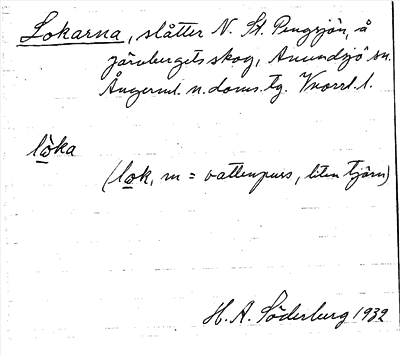 Lokarna, slåtter N. St. Pengsjön, å
järnbergets skog, Anundsjö sn.
Ångerml. n. doms. tg. Vnorrl. l.
lo̲ka
(lo̲k, m = vattenpuss, liten tjärn)
H. A. Söderburg 1932